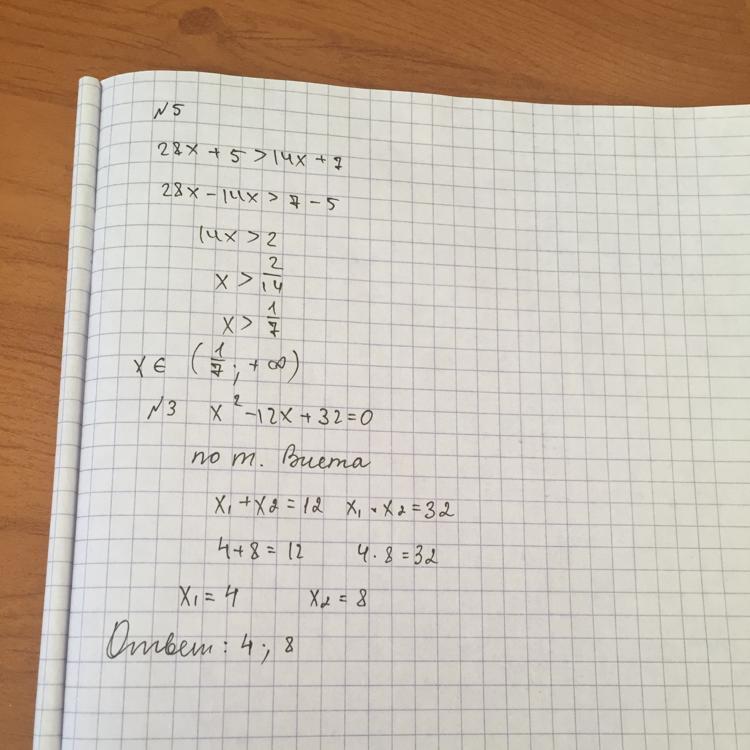 №5
28x + 5 > 14x + 7
28x - 14x > 7 - 5
14x > 2
x > 2/14
x > 1/7
x ∈ (1/7; +∞)
№3 x² - 12x + 32 = 0
по т. Виета
x₁ + x₂ = 12 x₁ · x₂ = 32
4 + 8 = 12 4 · 8 = 32
x₁ = 4 x₂ = 8
Ответ: 4; 8